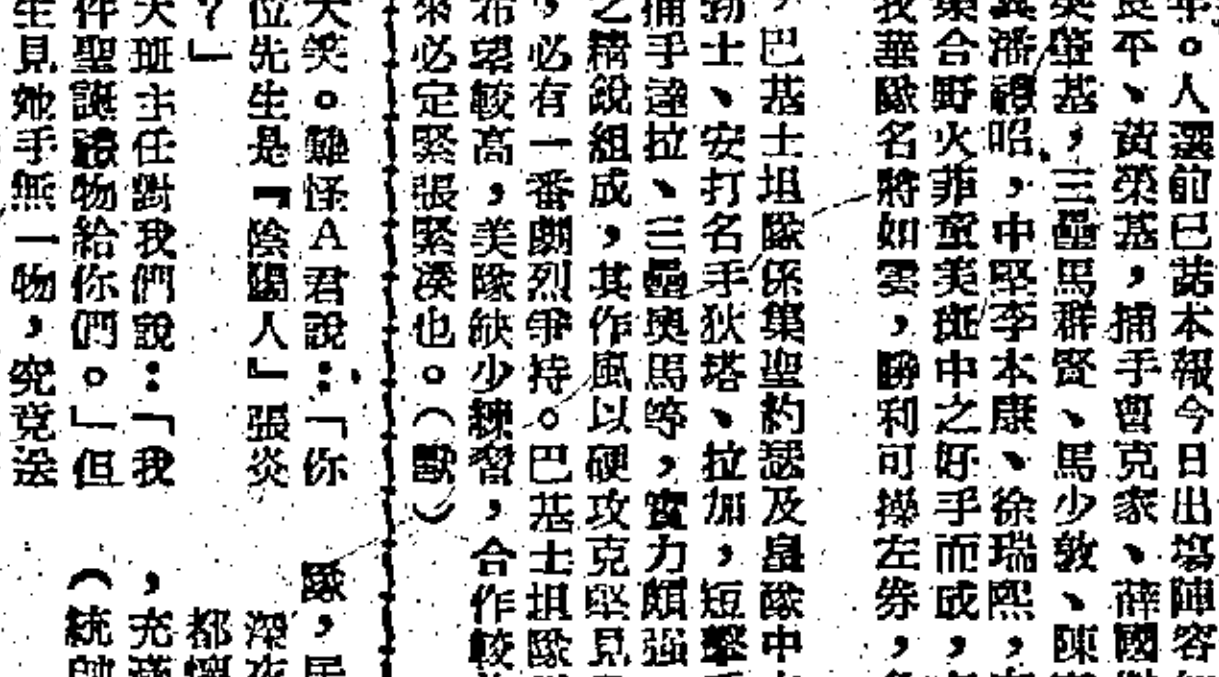 年。人選前已諾本報今日出塲陣容
良平、黃榮基，捕手曹克家、薛國
吳肇基，三壘馬群賢、馬少敦、陳
潘禮昭，中堅李本康、徐瑞熙，
集合野火菲童美斑中之好手而成，
我華隊名將如雲，勝利可操左券，
，巴基士坦隊係集聖約瑟及皇隊中
勃士、安打名手狄塔、拉加，短擊
捕手達拉、三壘奧馬等，實力頗强
之精銳組成，其作風以硬攻克堅見
，必有一番劇烈爭持。巴基士坦隊
希望較高，美隊缺少練習，合作較
來必定緊張緊湊也。（獸）
大笑。難怪A君說：「你
位先生是『陰陽人』張炎
？」
天班主任對我們說：「我
件聖誕禮物給你們。」但
生見她手無一物，究竟送
隊，
深夜
都
，充滿
（統帥